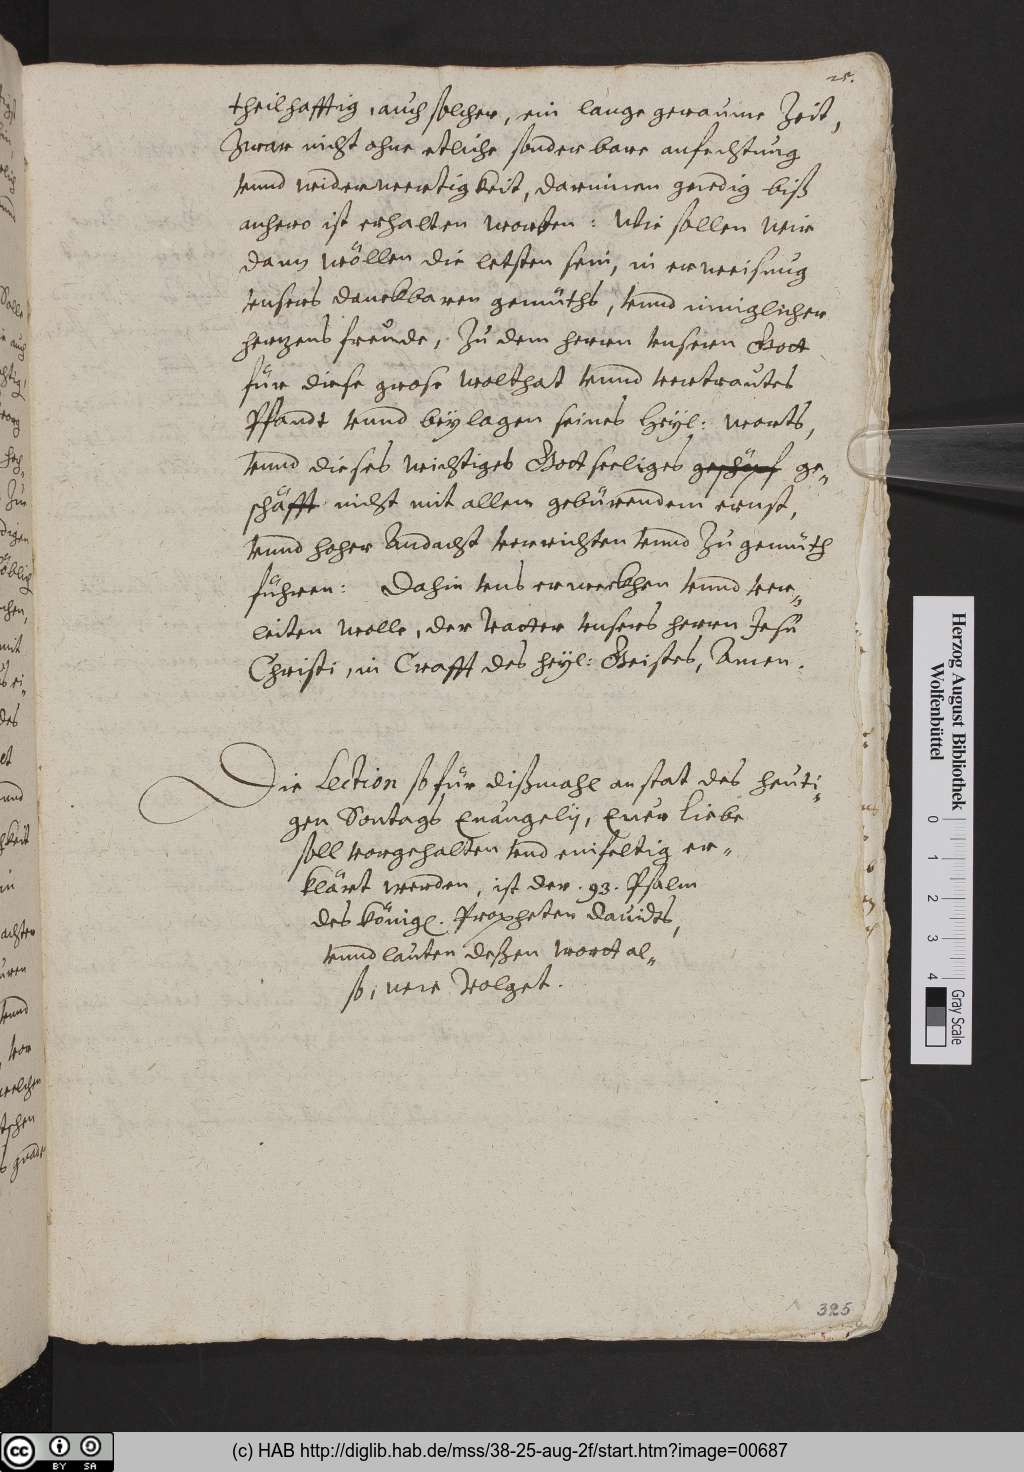 25.
theilhafftig, auch solcher, ein lange geraume Zeit,
Zwar nicht ohne etliche sonderbare anfechtung
vnnd widerwertigkeit, darinnen genedig biß
anhero ist erhalten worden: Wie sollen wir
dann wöllen die letsten sein, in erweisung
vnsers danckbaren gemüths, vnnd inniglicher
hertzens freude, Zu dem herren vnserm Gott
für diese grose wolthat vnnd vertrautes
Pfandt vnnd beylagen seines Heyl: worts,
vnnd dieses wichtiges Gottseeliges geschöpf ge„
schäfft nicht mit allem gebürendem ernst,
vnnd hoher Andacht verrichten vnnd Zu gemüth
führen: Dahin vns erweckhen vnnd ver„
leiten wolle, der Vatter vnsers herren Jesu
Christi, in Crafft des heyl: Geistes, Amen.
Die Lection so für dißmahl an stat des heuti„
gen Sontags Euangelij, Euer Liebe
soll vorgehalten vnd einfeltig er„
klärt werden, ist der .93. Psalm
des Königl. Propheten Dauids,
vnnd lauten deßen wort al„
so, wie volget.
325
Herzog August Bibliothek
Wolfenbüttel
0 1 2 3 4
Gray Scale
cc BY SA
(c) HAB http://diglib.hab.de/mss/38-25-aug-2f/start.htm?image=00687